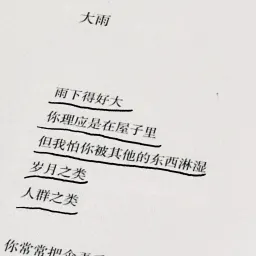 大雨
雨下得好大
你理应是在屋子里
但我怕你被其他的东西淋湿
岁月之类
人群之类
你常常把伞弄